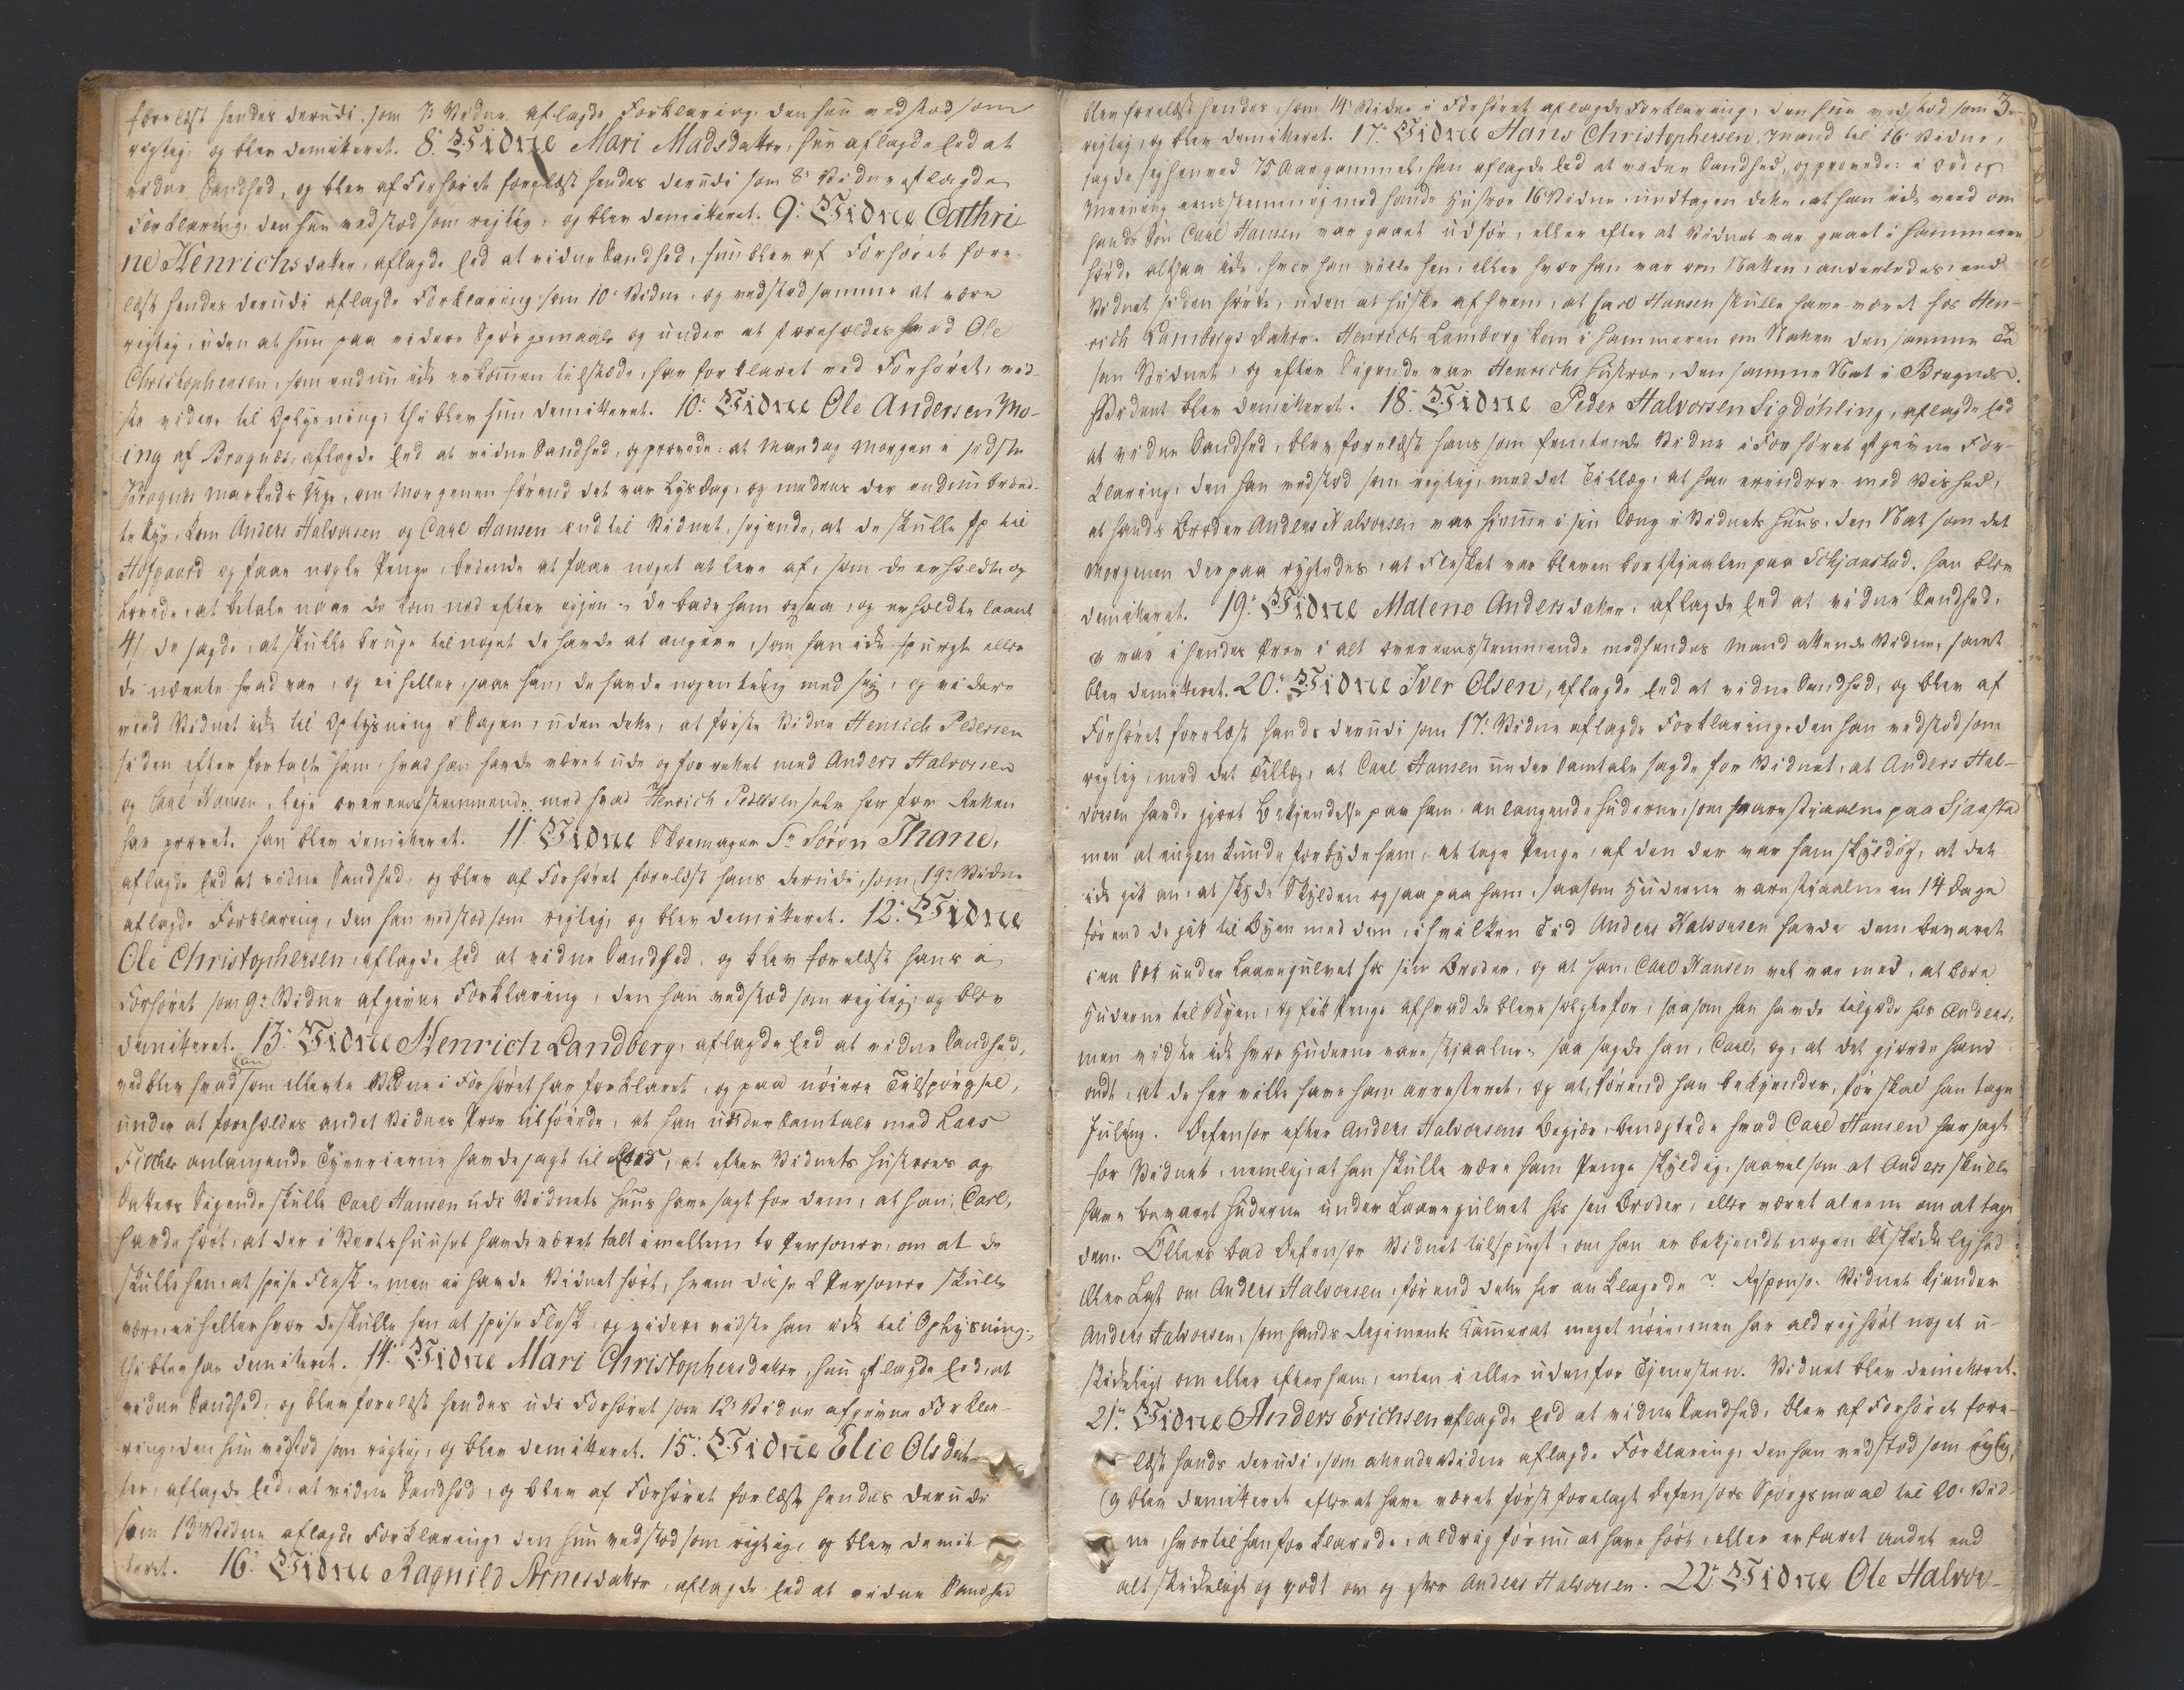 forelæst hendes derudi som 7de Vidne aflagde Forklaring, den hun vedstod som
rigtig, og blev demitteret. 8de Vidne Mari Madsdatter, hun aflagde Eed at
vidne Sandhed, og blev af Forhøret forelæst hendes derudi som 8de Vidne aflagde
Forklaring, den hun vedstod som rigtig, og blev demitteret. 9de Vidne Cathri
ne Henrichsdatter, aflagde Eed at vidne Sandhed, hun blev af Forhøret fore-
læst hendes derudi aflagde Forklaring som 10de Vidne, og vedstod samme at være
rigtig, uden at hun paa videre Spørgsmaale og under at foreholdes hvad Ole
Christophersen, som endnu ikke er kommen tilstæde, har forklaret ved Forhøret, vid-
ste videre til Oplysning, thi blev hun demitteret. 10de Vidne Ole Andersen Mo-
ing af Bragnæs, aflagde Eed at vidne Sandhed, og provede: at Mandag Morgen i sidste
Bragnæs Markeds Uge, om Morgenen førend det var lys Dag, og medens der endnu brænd-
te Lys, kom Anders Halvorsen og Carl Hansen ind til Vidnet, sigende, at de skulle op til
Hofgaard og faae nogle Penge, bedende at faae noget at leve af, som de erholdte og
lovede, at betale naar de kom ned efter igjen. de bade ham ogsaa, og erholdte laant
4 de sagde, at skulle bruge til noget de havde at angive, som han ikke spurgte eller
de nævnte hvad var, og ei heller saae han, de havde nogen ting med sig, og videre
veed Vidnet ikke til Oplysning i Sagen, uden dette, at første Vidne Henrich Pedersen
siden efter fortalte ham, hvad han havde været ude og forrettet med Anders Halvorsen
og Carl Hansen, lige overeensstemmende med hvad Henrich Pedersen selv her for Retten
har provet. han blev demitteret. 11te Vidne Skoemager Sr Søren Thane,
aflagde Eed at vidne Sandhed, og blev af Forhøret forelæst hans derudi, som 19de Vidne
aflagde Forklaring, den han vedstod som rigtig, og blev demitteret. 12te Vidne
Ole Christophersen, aflagde Eed at vidne Sandhed, og blev forelæst hans i
Forhøret som 9de Vidne afgivne Forklaring, den han vedstod som rigtig, og blev
demitteret. 13de Vidne Henrich Landberg, aflagde Eed at vidne Sandhed,
vedblev hvad han som ellevte Vidne i Forhøret har forklaret, og paa nøiere Tilspørgsel,
under at foreholdes andet Vidnes Prov tilføiede, at han under Samtale med Lars
Fischer anlangende Tyverierne havde sagt til, at efter Vidnets Hustroes og
Datters Sigende skulle Carl Hansen udi Vidnets Huus have sagt for dem, at han, Carl,
havde hørt, at der i Vertshuuset havde været talt imellem to Personer, om at de
skulle hen, at spise Flesk. men ei havde Vidnet hørt, hvem disse 2 Personer skulle
være, ei heller hvor de skulle hen at spise Flesk, og videre vidste han ikke til Oplysning,
thi blev han demitteret. 14de Vidne Mari Christophersdatter, hun aflagde Eed, at
vidne Sandhed, og blev forelæst hendes udi Forhøret som 12te Vidne afgivne Forkla-
ring, den hun vedstod som rigtig, og blev demitteret. 15de Vidne Elie Olsdat-
ter, aflagde Eed, at vidne Sandhed, og blev af Forhøret forlæst hendes derudi
som 13de Vidne aflagde Forklaring, den hun vedstod som rigtig, og blev demit
teret. 16de Vidne Ragnild Arnesdatter, aflagde Eed at vidne Sandhed
3
blev forelæst hendes, som 14de Vidne i Forhøret aflagde Forklaring, den hun vedstod som
rigtig, og blev demitteret. 17de Vidne Hans Christophersen, Mand til 16de Vidne,
sagde sig henved 75 Aar gammel, han aflagde Eed at vidne Sandhed, og provede: i Ord og
Meening eensstemmig med hands Hustroe 16de Vidne, undtagen dette, at han ikke veed om
hands Søn Carl Hansen var gaaet udfør, eller efter at Vidnet var gaaet i Kammeret
hørde altsaa ikke, hvor han ville hen, eller hvor han var om Natten, anderledes, end
Vidnet siden hørte, uden at huske af hvem, at Carl Hansen skulle have været hos Hen-
rich Lambergs Datter. Henrich Lamborg kom i Kammeret om Natten den samme Ti
saa Vidnet, og efter Sigende var Henrichs Hustroe, den samme Nat i Bragnæs.
Vidnet blev demitteret. 18de Vidne Peder Halvorsen Sigdøhling, aflagde Eed
at vidne Sandhed, blev forelæst hans som femtende Vidne i Forhøret afgivne For-
klaring, den han vedstod som rigtig, med det Tillæg, at han erindrer med Vished,
at hands Broder Anders Halvorsen var hjemme i sin Seng i Vidnets Huus, den Nat som det
Morgenen derpaa rygtedes, at Flesket var bleven bortstjaalen paa Schjaastad. han blev
demitteret. 19de Vidne Malene Andersdatter, aflagde Eed at vidne Sandhed,
og var i hendes Prov i alt overeensstemmende med hendes Mand attende Vidne, samt
blev demitteret. 20de Vidne Iver Olsen, aflagde Eed at vidne Sandhed, og blev af
Forhøret forelæst hands derudi som 17de Vidne aflagde Forklaring, den han vedstod som
rigtig, med det Tillæg, at Carl Hansen under Samtale sagde for Vidnet, at Anders Hal-
vorsen havde gjort Bekjendelse paa ham anlangende Huderne, som vare stjaalne paa Sjaastad
men at ingen kunde forbyde ham, at tage Penge, af den der var ham skyldig, at det
ikke gik an, at skyde Skylden ogsaa paa ham, saasom Huderne vare stjaalne en 14 Dage
førend de gik til Byen med dem, i hvilken Tid Anders Halvorsen havde dem bevaret
i en Sæk under Laavegulvet hos sin Broder, og at han, Carl Hansen vel var med, at bære
Huderne til Byen, og fik Penge af hvad de bleve solgte for, saasom han havde tilgode hos Anders,
men vidste ikke hvor Huderne vare stjaalne. saa sagde han, Carl, og, at det gjorde ham
ondt, at de her ville have ham arresteret, og at, førend han bekjender, før skal han tage
Juling. Defensor efter Anders Halvorsens Begjær, benægtede hvad Carl Hansen har sagt
for Vidnet, nemlig, at han skulle være ham Penge skyldig, saavelsom at Anders skulle
have bevaret Huderne under Laavegulvet hos sin Broder, eller været aleene om at tage
dem. Ellers bad Defensor Vidnet tilspurgt, om han er bekjendt nogen Uskikkelighed
eller Last om Anders Halvorsen, førend dette her anklagede? Responso. Vidnet kjender
Anders Halvorsen, som hands Regiments Kammerat meget nøie, men har aldrig hørt noget u-
skikkeligt om eller efter ham, enten i eller udenfor Tjenesten. Vidnet blev demitteret.
21de Vidne Anders Erichsen aflagde Eed at vidne Sandhed, blev af Forhøret fore-
læst hands derudi, som attende Vidne aflagde Forklaring, den han vedstod som rigtig,
og blev demitteret efter at have været først forelagt Defensors Spørgsmaal til 20de Vid-
ne, hvortil han forklarede, aldrig før nu at have hørt, eller erfaret andet end
alt skikkeligt og godt om og efter Anders Halvorsen. 22de Vidne Ole Halvor-